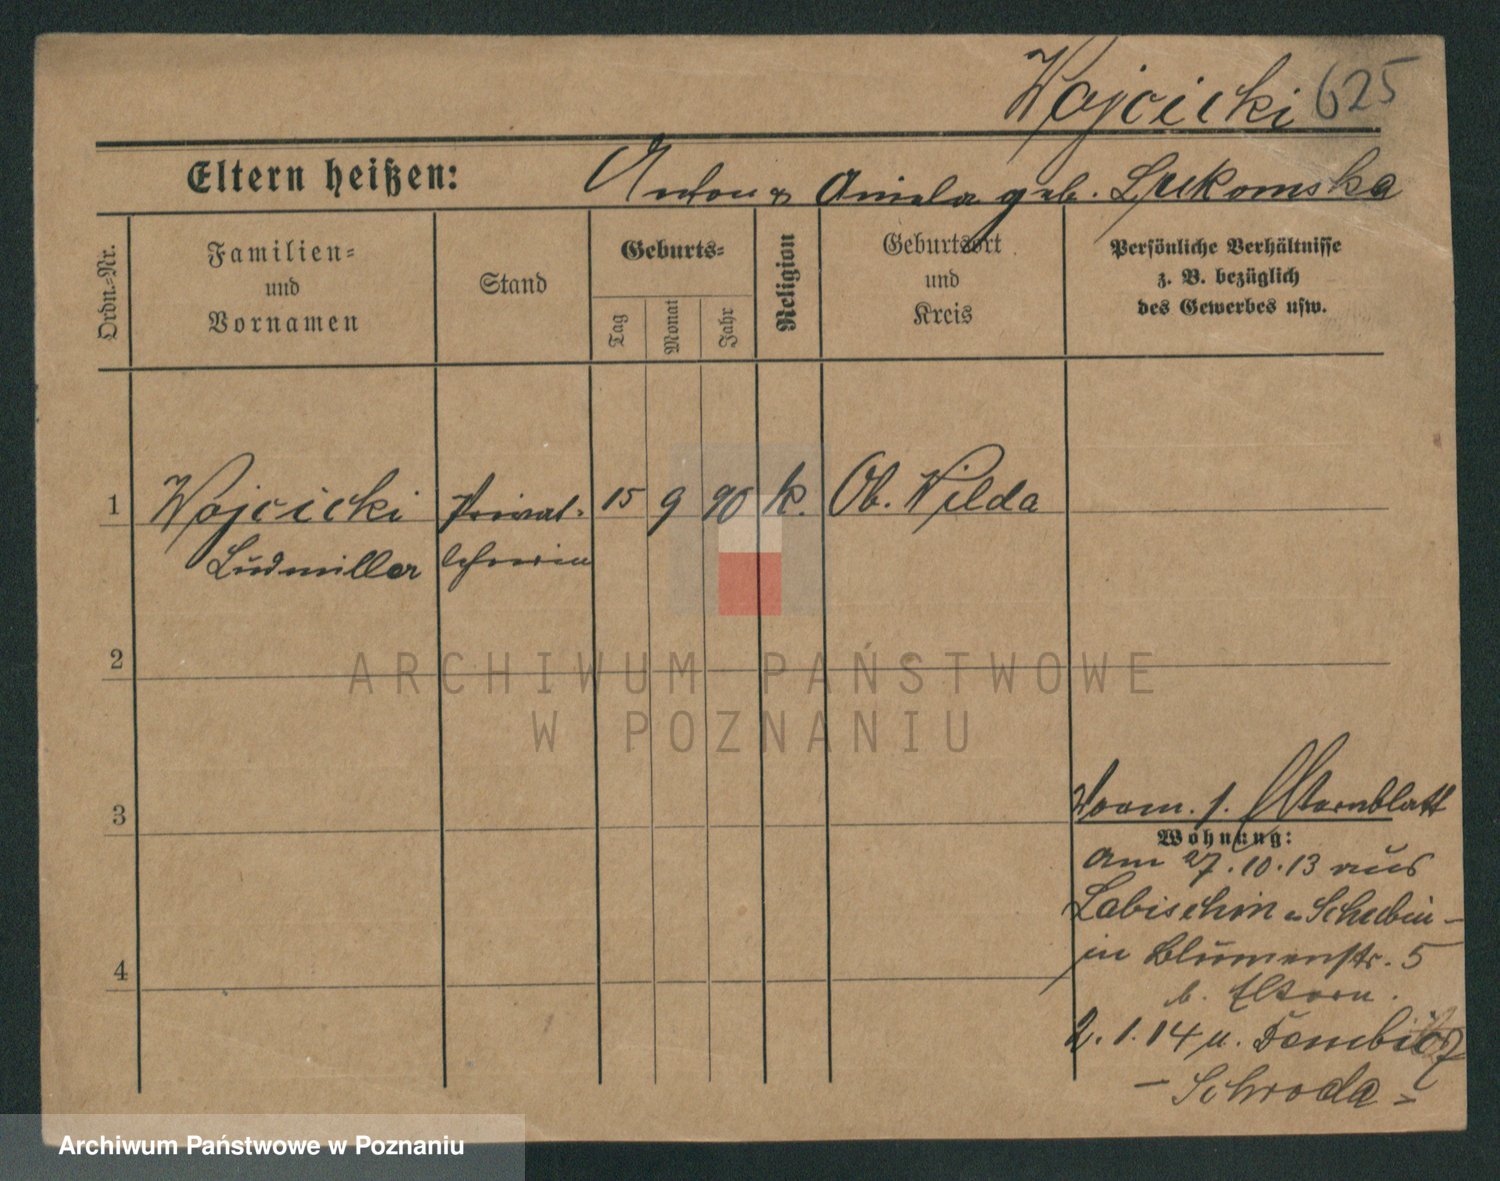 Wojcicki 625
Eltern heißen: Anton & Aniela geb. Lukomska
Ordn.-Nr.
Familien-
und
Vornamen
Stand
Geburts-
Tag
Monat
Jahr
Religion
Geburtsort
und
Kreis
Persönliche Verhältnisse
z. B. bezüglich
des Gewerbes usw.
1 Wojcicki Privat- 15 9 90 k. Ob. Wilda
Ludmilla lehrerin
2
ARCHIWUM PAŃSTWOWE
W POZNANIU
3
Vorm. s. Elternblatt
Wohnung:
am 27.10.13 aus
Labischin - Schubin -
in Blumenstr. 5
b. Eltern.
4
2.1.14 n.
- Schroda -
Archiwum Państwowe w Poznaniu